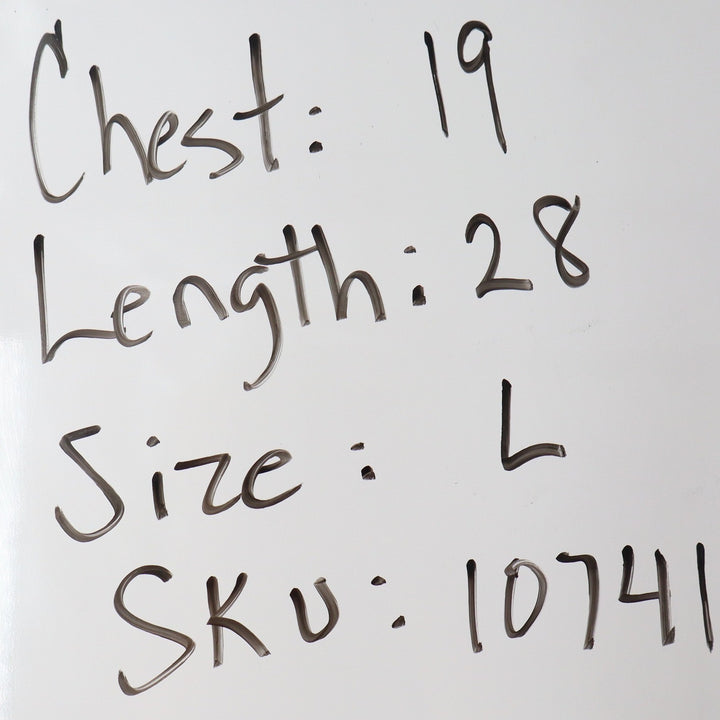 Chest: 19
Length: 28
Size: L
SKU: 10741